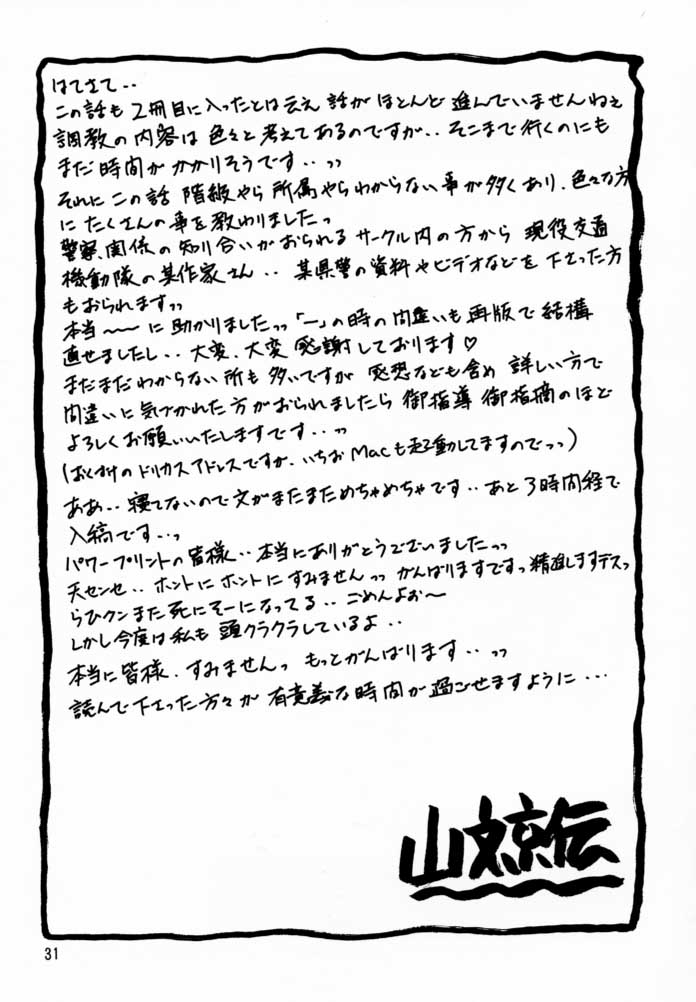 はてさて・・
この話も 2冊目に入ったとは云え 話が ほとんど 進んでいませんねぇ
調教の内容は 色々と 考えてあるのですが・・ そこまで行くのにも
まだ時間が かかりそうです・・ッッ
それに この話 階級やら 所属やらわからない事が多くあり、色々な方
に たくさんの事を教わりましたっ
警察関係の知り合いがおられる サークル内の方から 現役交通
機動隊の某作家さん・・ 某県警の資料やビデオなどを 下さった方
もおられますッッ
本当〜〜に 助かりましたッッ「一」の時の間違いも 再版で 結構
直せましたし・・ 大変、大変 感謝しております♡
まだまだわからない所も多いですが 感想なども含め 詳しい方で
間違いに気づかれた方がおられましたら 御指導 御指摘のほど
よろしくお願いいたしますです・・ッッ
(おくづけのドリカスアドレスですが、いちおMacも起動してますのでッッ)
ああ・・ 寝てないので文がまたまためちゃめちゃです・・あと3時間程で
入稿です・・っ
パワープリントの皆様・・本当にありがとうございましたッッ
天センセ・・ ホントに ホントに すみませんッッ がんばりますですっ精進しますデスっ
らひクンまた死にそーになってる・・ ごめんよぉ〜
しかし今度は私も 頭クラクラしているよ・・
本当に皆様、すみませんっ もっとがんばります・・ッッ
読んで下さった方々が 有意義な時間が 過ごせますように・・・
山文京伝
31